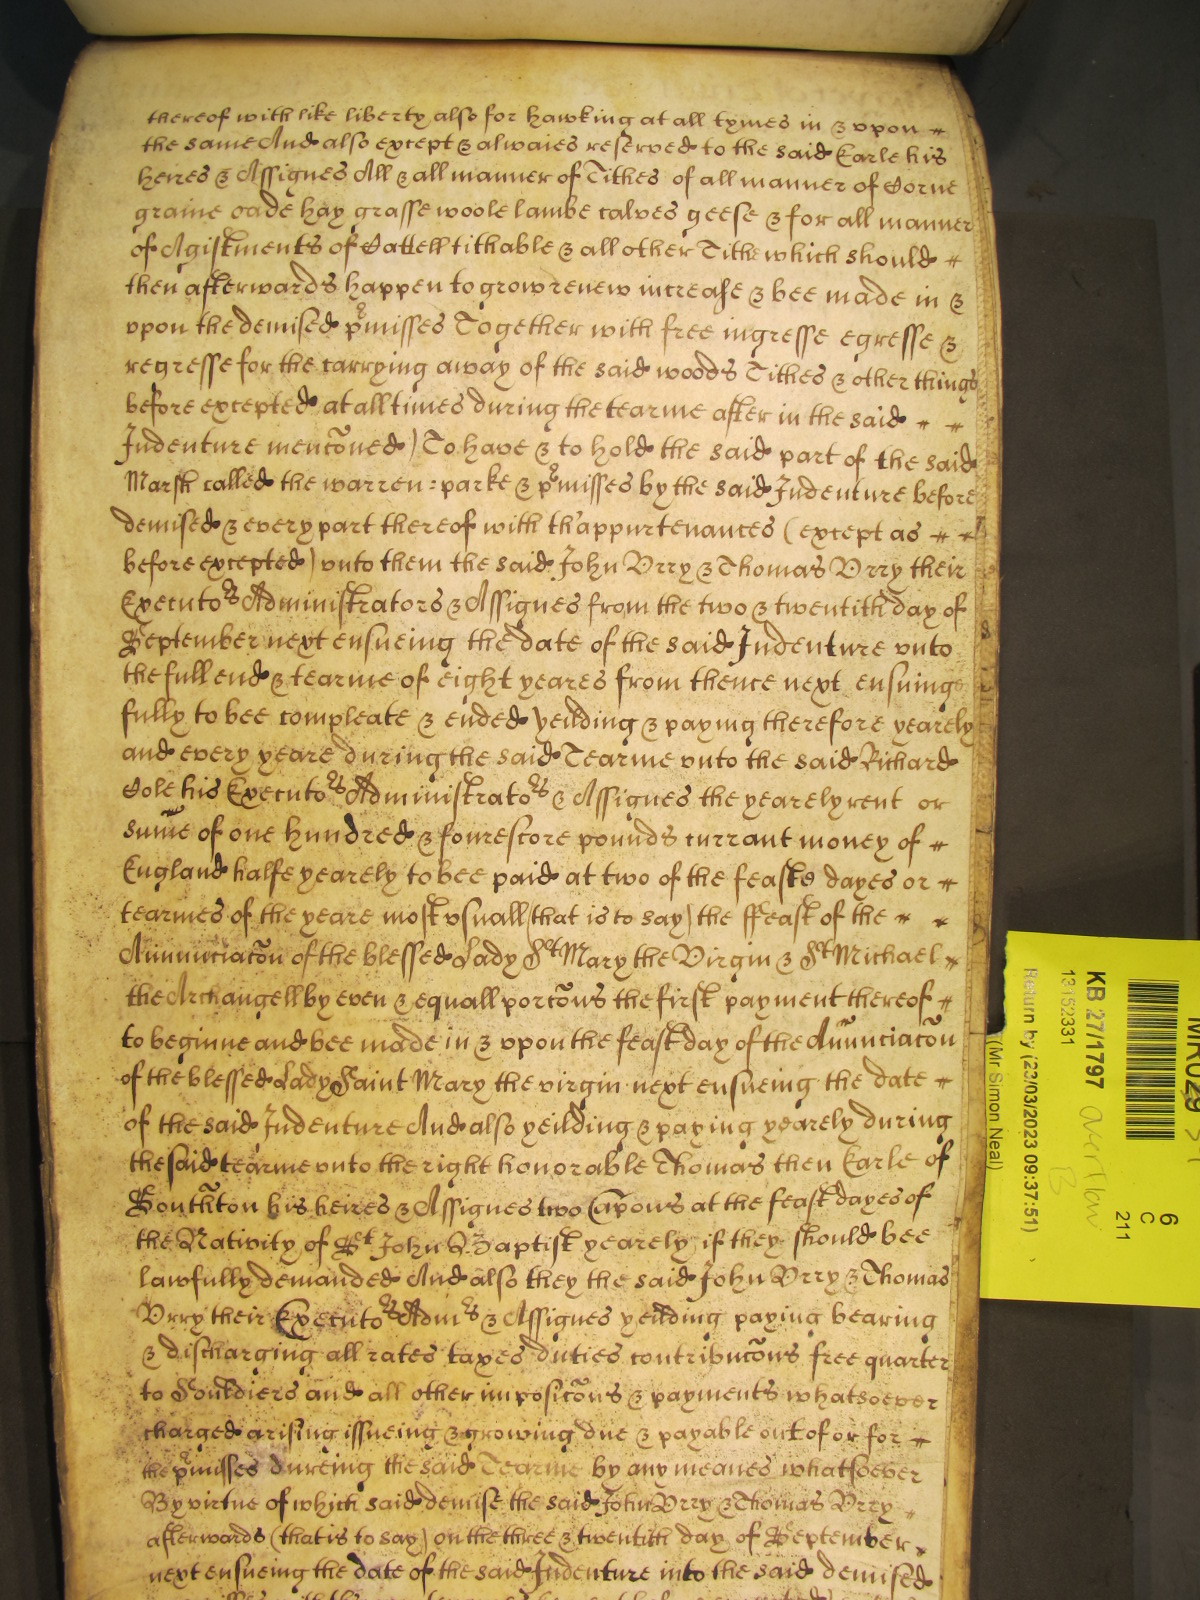 thereof with like liberty also for hawking at all tymes in & vpon
the same And also except & alwaies reserved to the said Earle his
heires & Assignes All & all manner of Tithes of all manner of Corne
graine oade hay grasse woole lambe calves geese & for all manner
of Agistments of Cattell tithable & all other Tithe which should
then afterwards happen to grow renew increase & bee made in &
vpon the demised pmisses Together with free ingresse egresse &
regresse for the carrying away of the said woods Tithes & other things
before excepted at all times during the tearme after in the said
Indenture mencõned) To have & to hold the said part of the said
Marsh called the warren : parke & pmisses by the said Indenture before
demised & every part thereof with th'appurtenances (except as
before excepted) vnto them the said John Vrry & Thomas Vrry their
Executors Administrators & Assignes from the two & twentith day of
September next ensueing the date of the said Indenture vnto
the full end & tearme of eight yeares from thence next ensuing
fully to bee compleate & ended yeilding & paying therefore yearely
and every yeare during the said Tearme vnto the said Richard
Cole his Executors Administrators & Assignes the yearely rent or
sume of one hundred & fourescore pounds currant money of
England halfe yearely to bee paid at two of the feasts dayes or
tearmes of the yeare most vsuall (that is to say) the ffeast of the
Annunciacõn of the blessed Lady St Mary the Virgin & St Michael
the Archangell by even & equall porcõns the first payment thereof
to beginne and bee made in & vpon the feast day of the Anunciacõn
of the blessed Lady Saint Mary the virgin next ensueing the date
of the said Indenture And also yeilding & paying yearely during
the said tearme vnto the right honorable Thomas then Earle of
Southton his heires & Assignes two Capons at the feast dayes of
the Nativity of St John Baptist yearely if they should bee
lawfully demanded And also they the said John Vrry & Thomas
Vrry their Executors Adm̃rs & Assignes yeilding paying bearing
& discharging all rates taxes duties contribucõns free quarter
to Souldiers and all other imposicõns & payments whatsoever
charged arising issueing & growing due & payable out of or for
the pmisses dureing the said Tearme by any meanes whatsoever
By virtue of which said demise the said John Vrry & Thomas Vrry
afterwards (that is to say) on the three & twentith day of September
next ensueing the date of the said Indenture into the said demised
KB 27/1797
13152331
Return by (23/03/2023 09:37:51)
(Mr Simon Neal)
6
C
211